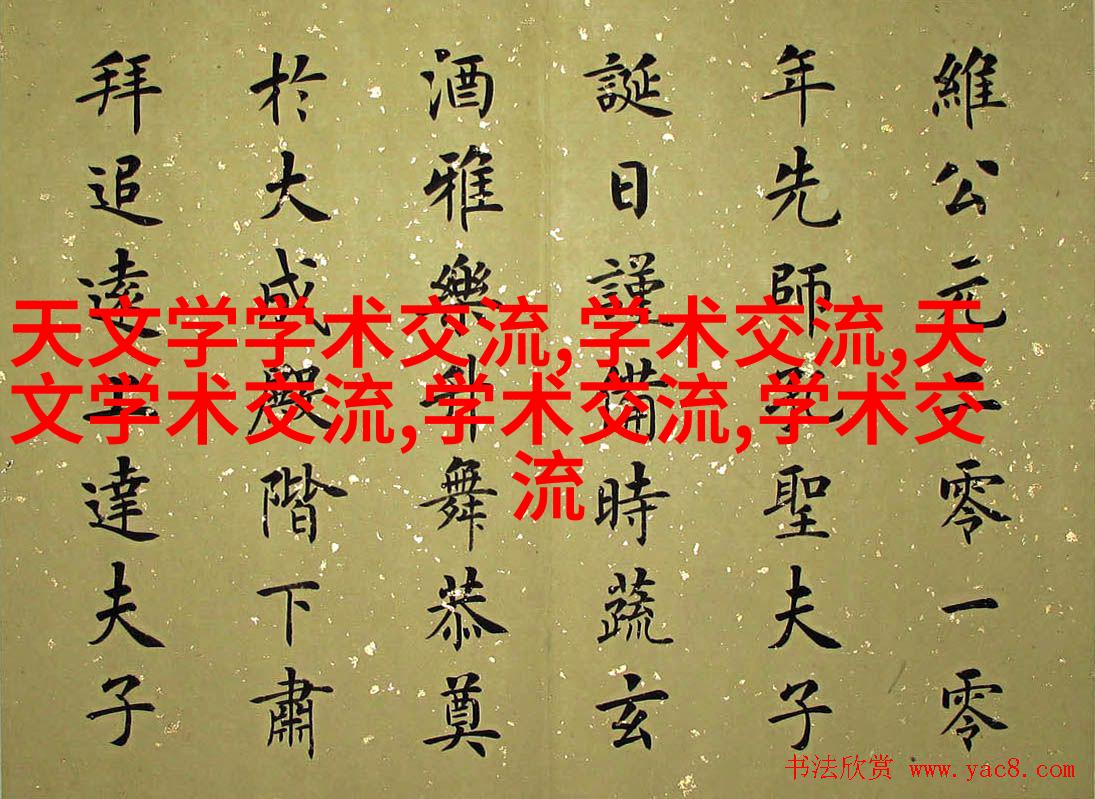 維公元二零一零
年先師孔聖夫子
誕日謹備時蔬玄
酒雅樂舞恭奠
於大成殿階下肅
拜追遠達夫子
天文学学术交流,学术交流,天
文学术交流,学术交流,学术交
流
书法欣赏 www.yac8.com